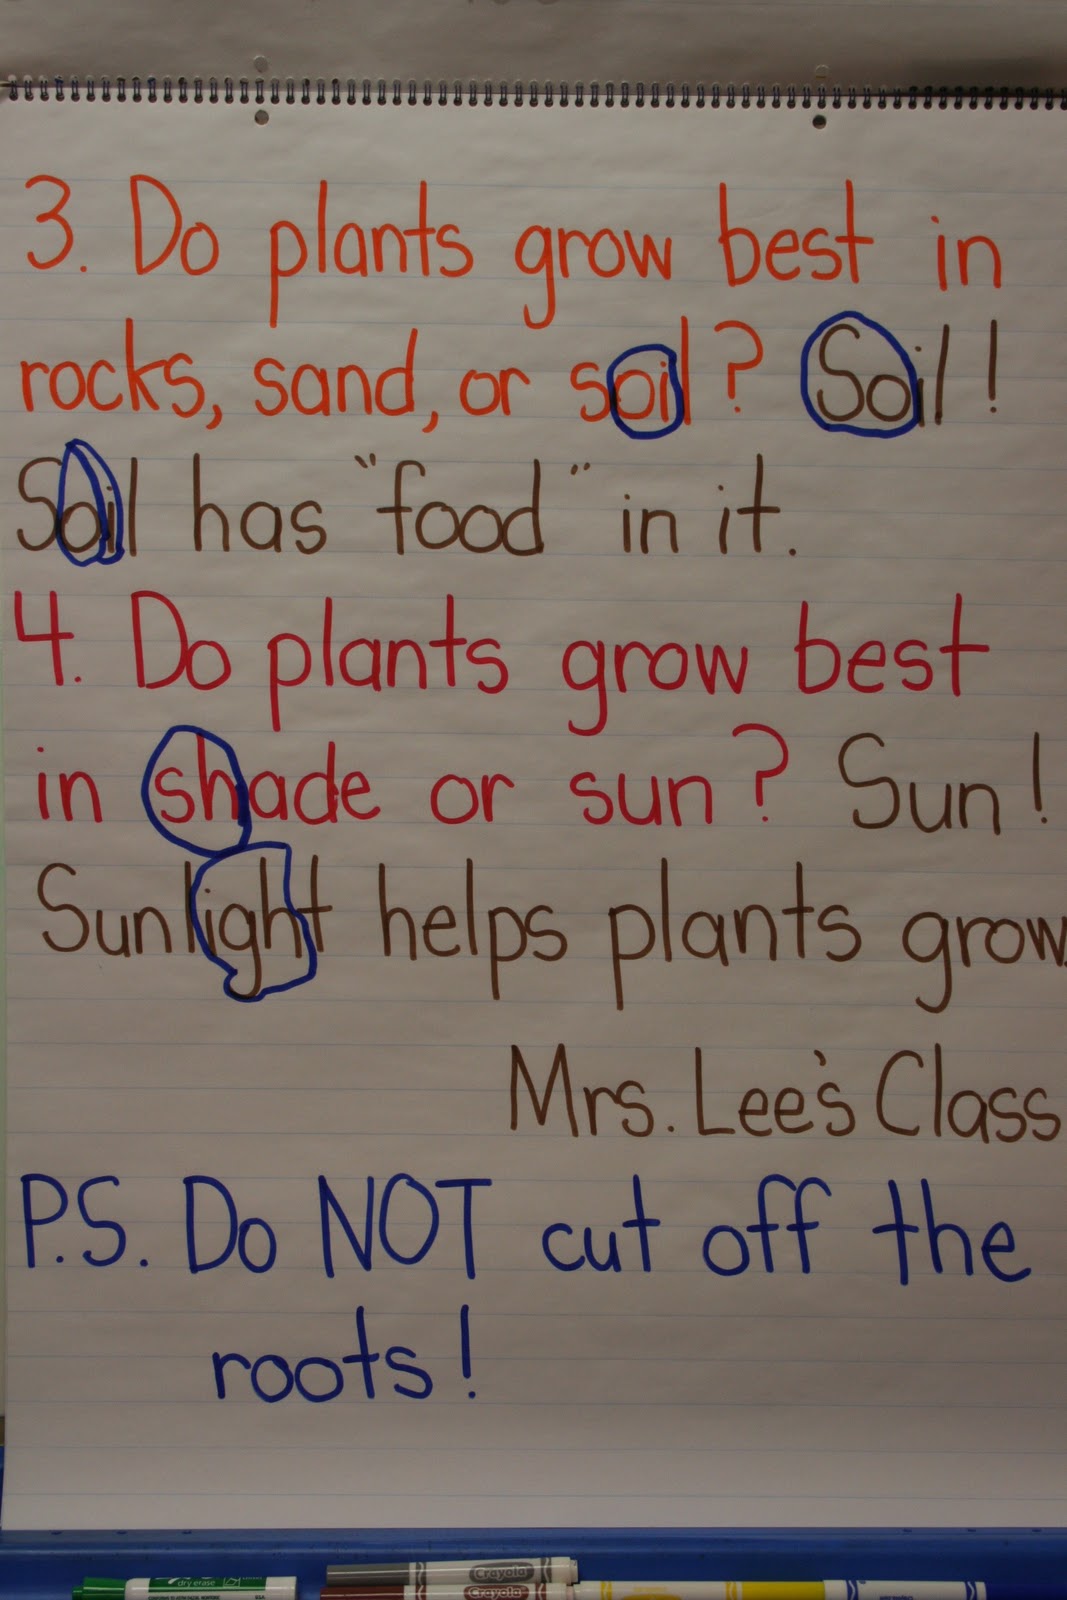 3. Do plants grow best in
rocks, sand, or soil? Soil!
Soil has "food" in it.
4. Do plants grow best
in shade or sun? Sun!
Sunlight helps plants grow.
Mrs. Lee's Class
P.S. Do NOT cut off the
roots!
Crayola
dry erase
Crayola